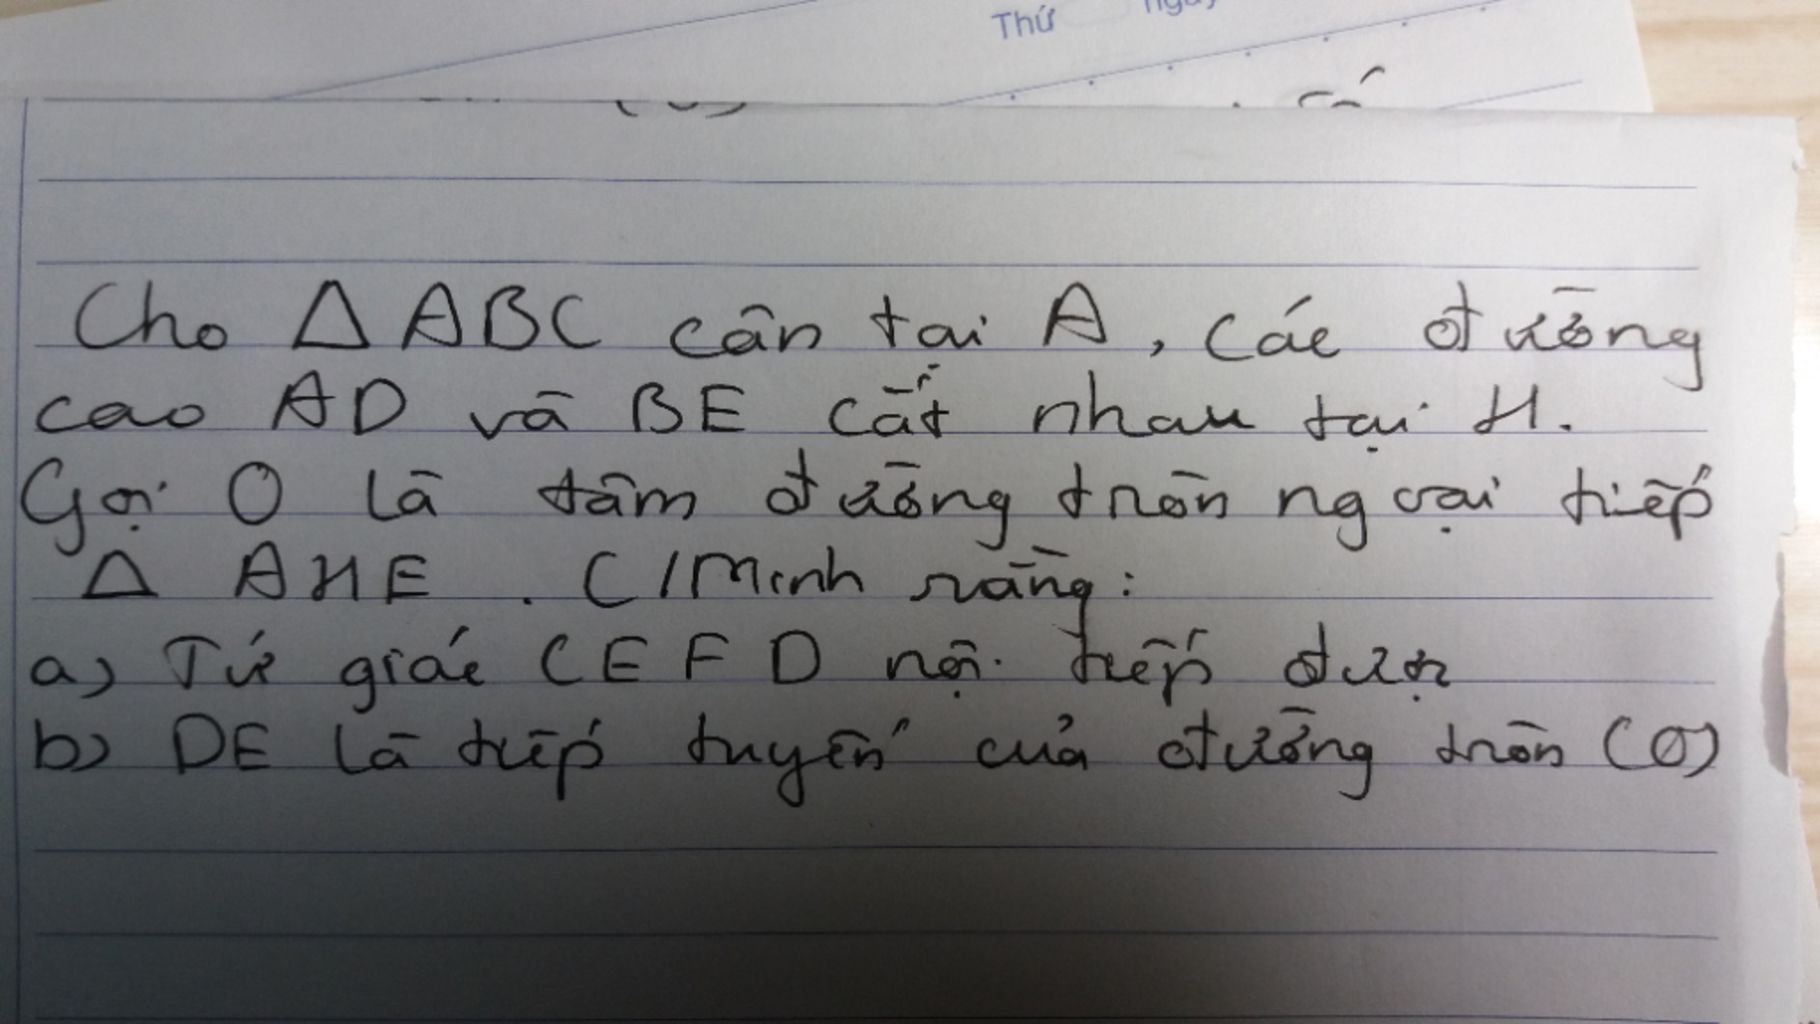 Thứ ngày
Cho Δ ABC cân tại A, các đường
cao AD và BE cắt nhau tại H.
Gọi O là tâm đường tròn ngoại tiếp
Δ AHE. C/Minh rằng:
a) Tứ giác CEFD nội tiếp được
b) DE là tiếp tuyến của đường tròn (O)